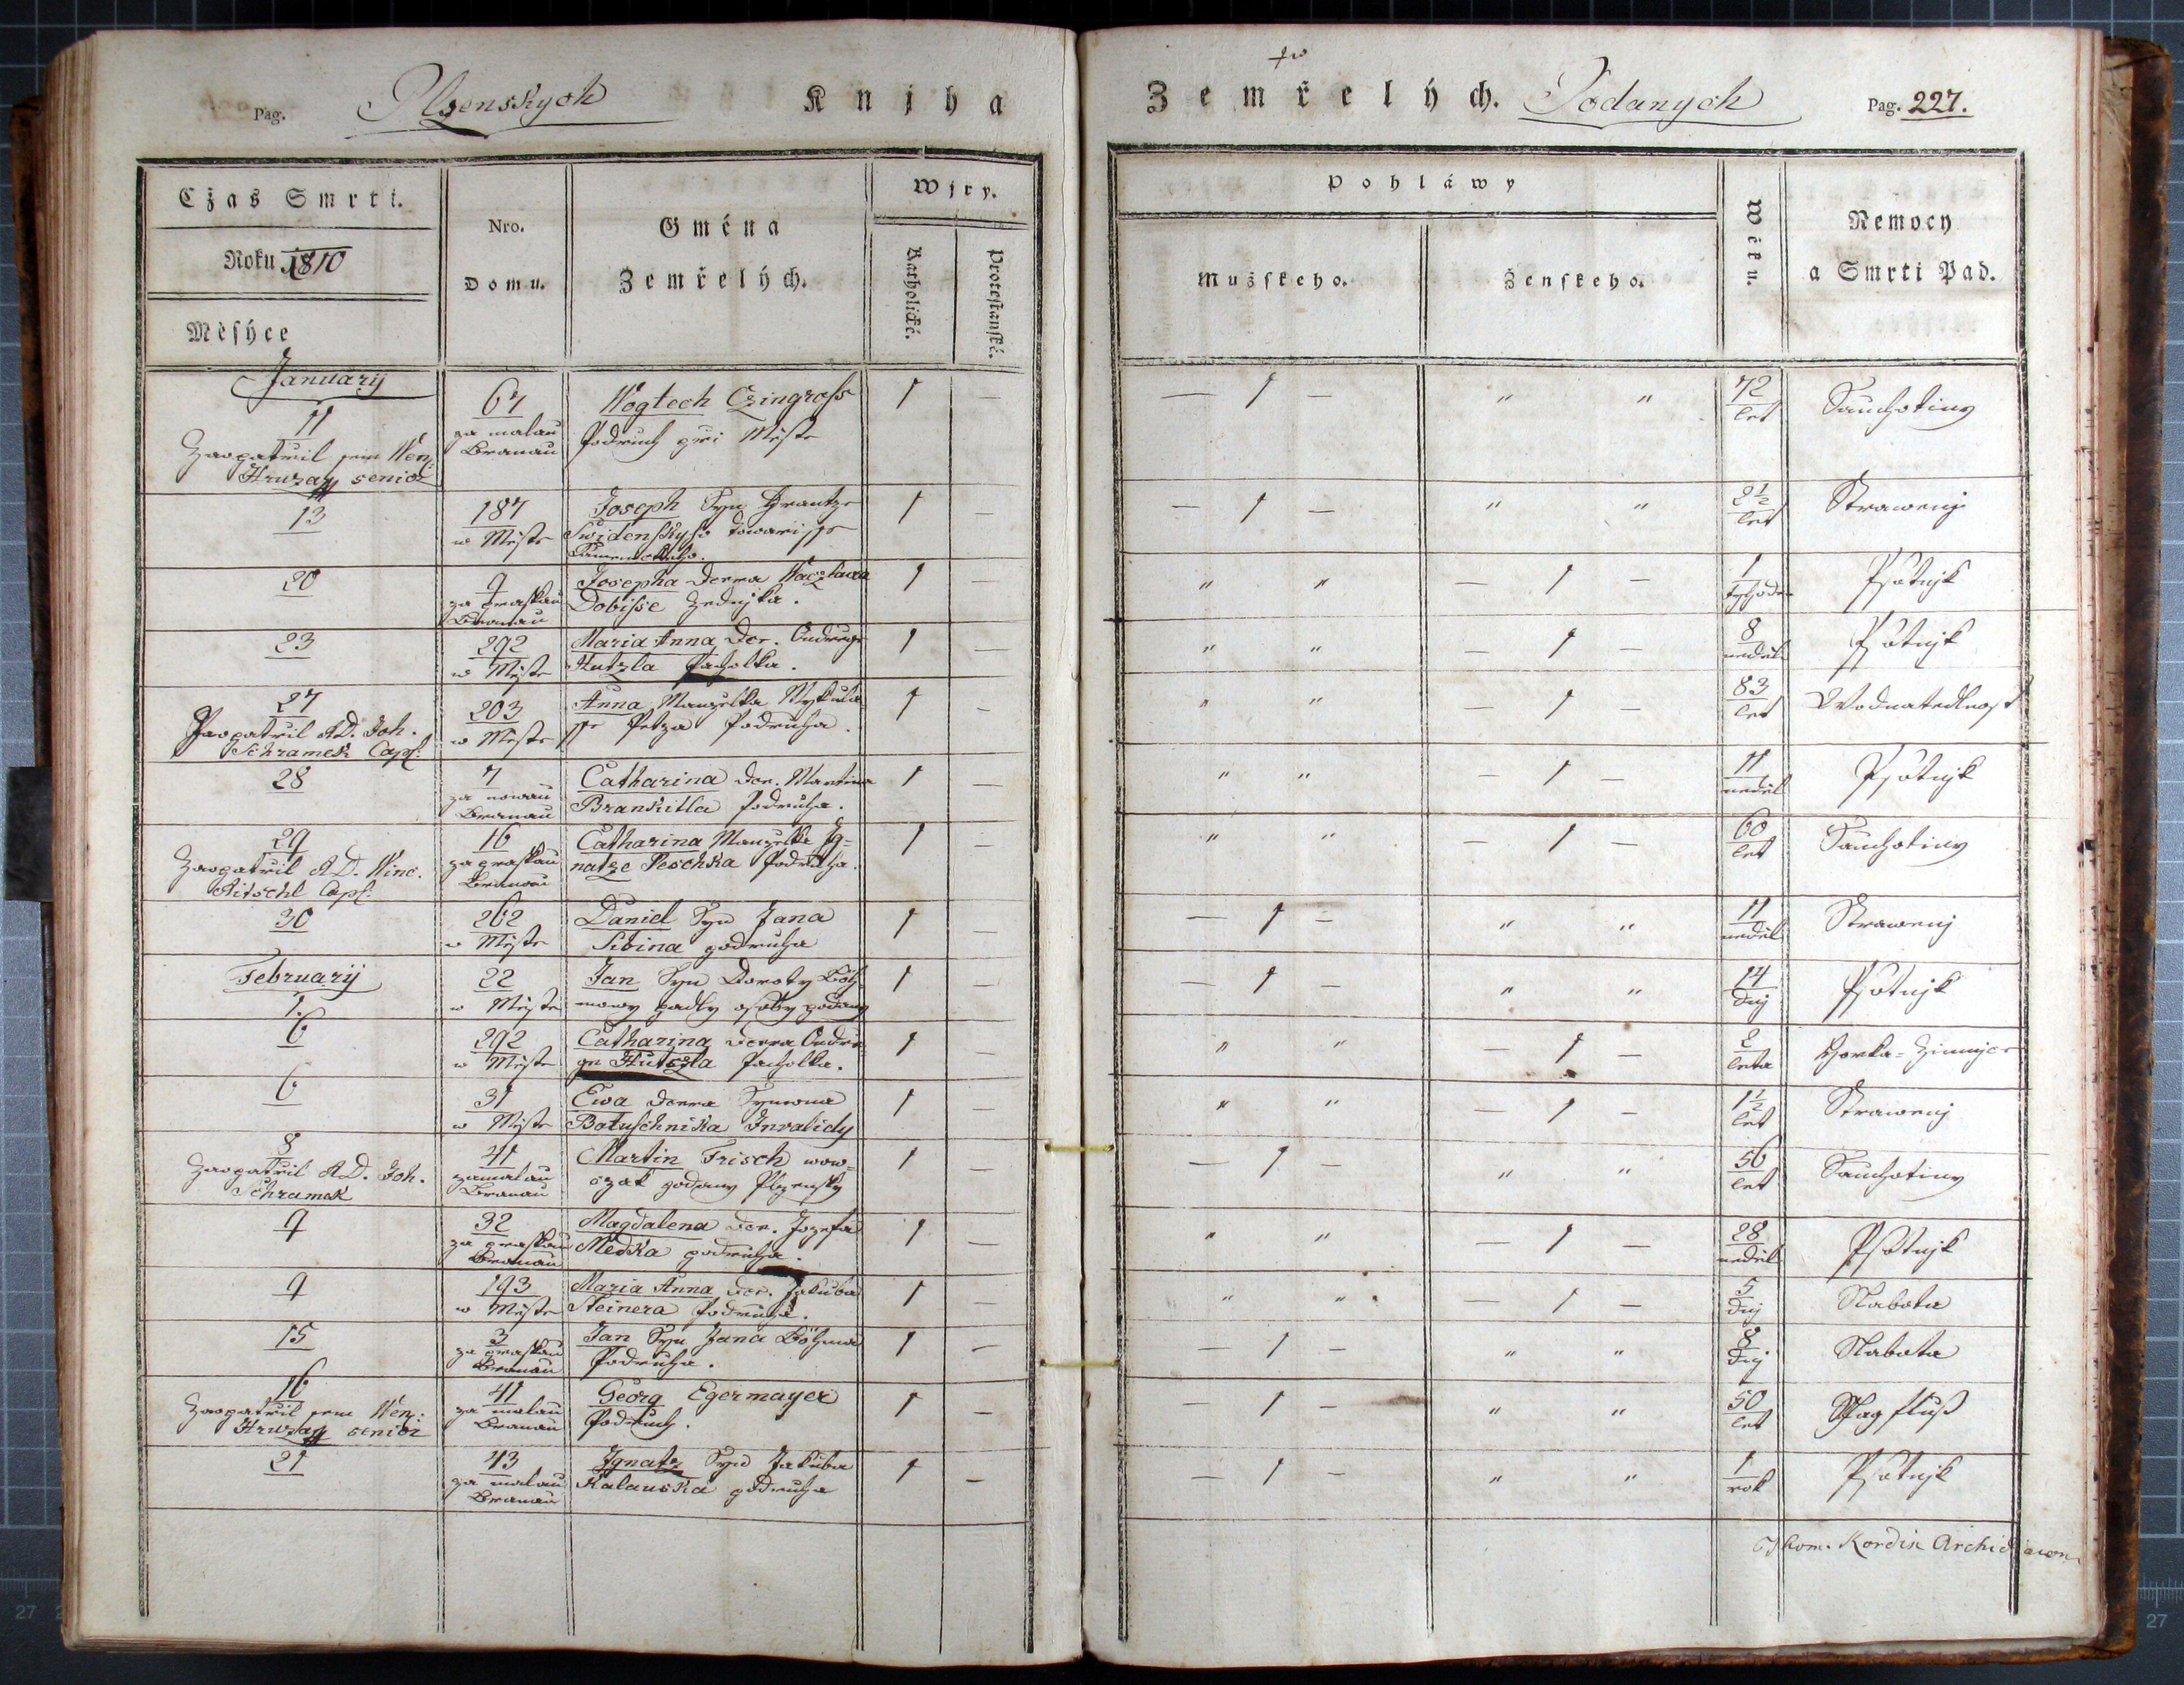 Pag. Plzenskych Knjha
Zemřelých. Podanych Pag. 227.
Cžas Smrti.
Roku 1810
Měsýce
Nro.
Domu.
Gména
Zemřelých.
Wjry.
Katholické.
Protestanské.
Pohláwy
Mužskeho.
Ženskeho.
Wěku.
Nemocy
a Smrti Pad.
Januarij
11
Zaopatřil sem Wen:
Hruzay senior
67
za malau
Branau
Wogtech Czingross
Podruh při Městě
1 —
— 1 — " "
72
let
Sauchotiny
13
187
w Městě
Joseph Syn Frantze
Swidenskyho towarisse
1 —
— 1 — " "
2 1/2
let
Strawenj
20
9
za praskau
Branau
Josepha dcera Waczlawa
Dobisse Zednjka.
1 —
" " — 1 —
1
tyhoden
Psotnjk
23
292
w Městě
Maria Anna Dcr. Ondrege
Hutzla Pacholka.
1 —
" " — 1 —
8
neděl
Psotnjk
27
Zaopatřil A.D. Joh.
Schramek Capl:
203
w Městě
Anna Manzelka Mykula
sse Petza Podruha.
1 —
" " — 1 —
83
let
Wodnatedlnost
28
7
za nowau
Branau
Catharina dcr. Martina
Branskitla Podruha.
1 —
" " — 1 —
11
neděl
Psotnjk
29
Zaopatřil A.D. Winc.
Ritschl Capl:
16
za praskau
Branau
Catharina Manzelka Ig=
natze Peschka Podruha.
1 —
" " — 1 —
60
let
Sauchotiny
30
262
w Městě
Daniel Syn Jana
Sibina podruha
1 —
— 1 — " "
11
neděl
Strawenj
Februarij
1.
22
w Městě
Jan Syn Doroty Böh
mowy padly osoby podany
1 —
— 1 — " "
14
dnj
Psotnjk
6
292
w Městě
Catharina dcera Ondre=
ge Hutzla Pacholka.
1 —
" " — 1 —
2
leta
Horka=Zimnjce
6
31
w Městě
Ewa dcera Symona
Botuschnika Invalidy
1 —
" " — 1 —
1 1/2
let
Strawenj
8
Zaopatřil A.D. Joh.
Schramek
41
za malau
Branau
Martin Frisch wow=
czak podany Plzensky
1 —
— 1 — " "
56
let
Sauchotiny
9
32
za praskau
Branau
Magdalena dcr. Jozefa
Medka podruha.
1 —
" " — 1 —
28
neděl
Psotnjk
9
193
w Městě
Maria Anna dcr. Jakuba
Steinera Podruha.
1 —
" " — 1 —
5
dnj
Slabota
15
3
za praskau
Branau
Jan Syn Jana Böhma
Podruha.
1 —
— 1 — " "
8
dnj
Slabota
16
Zaopatřil sem Wen:
Hruzay senior
41
za malau
Branau
Georg Egermayer
Podruh.
1 —
— 1 — " "
50
let
21
43
za malau
Branau
Ignatz Syn Jakuba
Kalauska podruha
1 —
— 1 — " "
1
rok
Psotnjk
Thom. Kordik Archidiacon
27
27